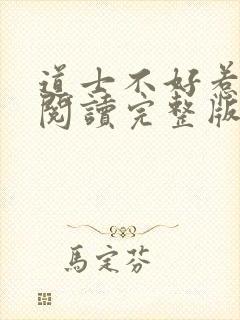 道士不好惹
閱讀完整版
馬定芬